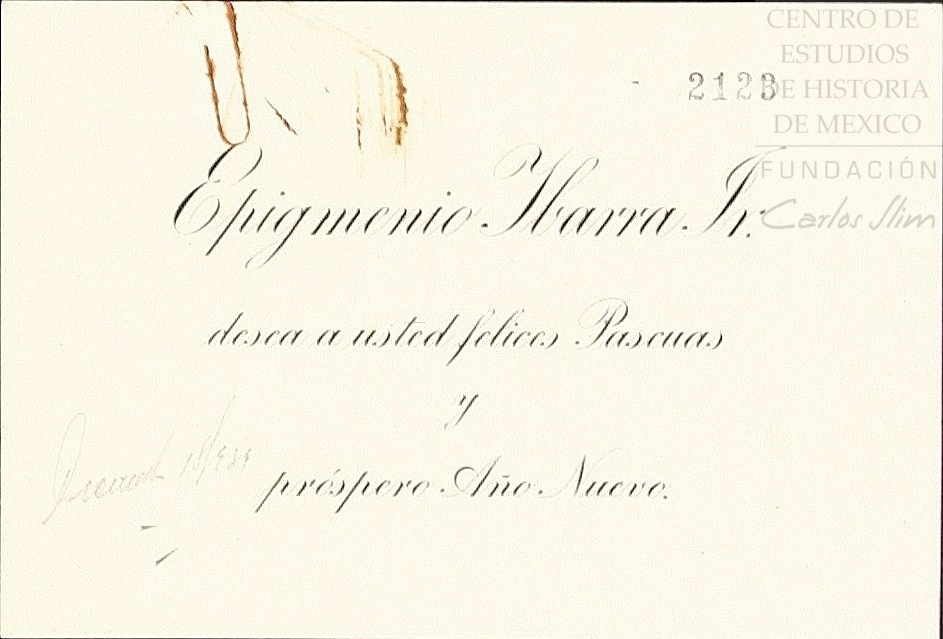 CENTRO DE
ESTUDIOS
DE HISTORIA
DE MEXICO
FUNDACIÓN
Carlos Slim
2123
Epigmenio Ibarra Jr.
desea a usted felices Pascuas
y
próspero Año Nuevo.